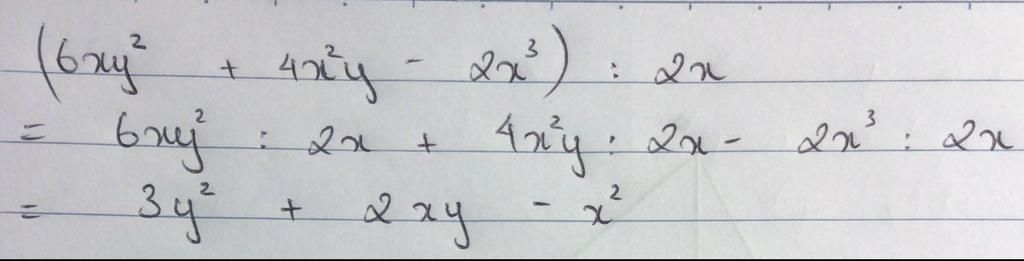 (6xy² + 4x²y - 2x³) : 2x
= 6xy² : 2x + 4x²y : 2x - 2x³ : 2x
= 3y² + 2xy - x²